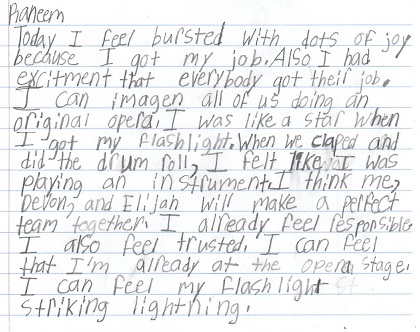 Raneem
Today I feel bursted with dots of joy
because I got my job. Also I had
excitment that everybody got their job.
I can imagen all of us doing an
original opera. I was like a star when
I got my flashlight. When we claped and
did the drum roll, I felt like I was
playing an instrument. I think me,
Devon, and Elijah will make a perfect
team together. I already feel responsible.
I also feel trusted. I can feel
that I'm already at the opera stage.
I can feel my flashlight
striking lightning.